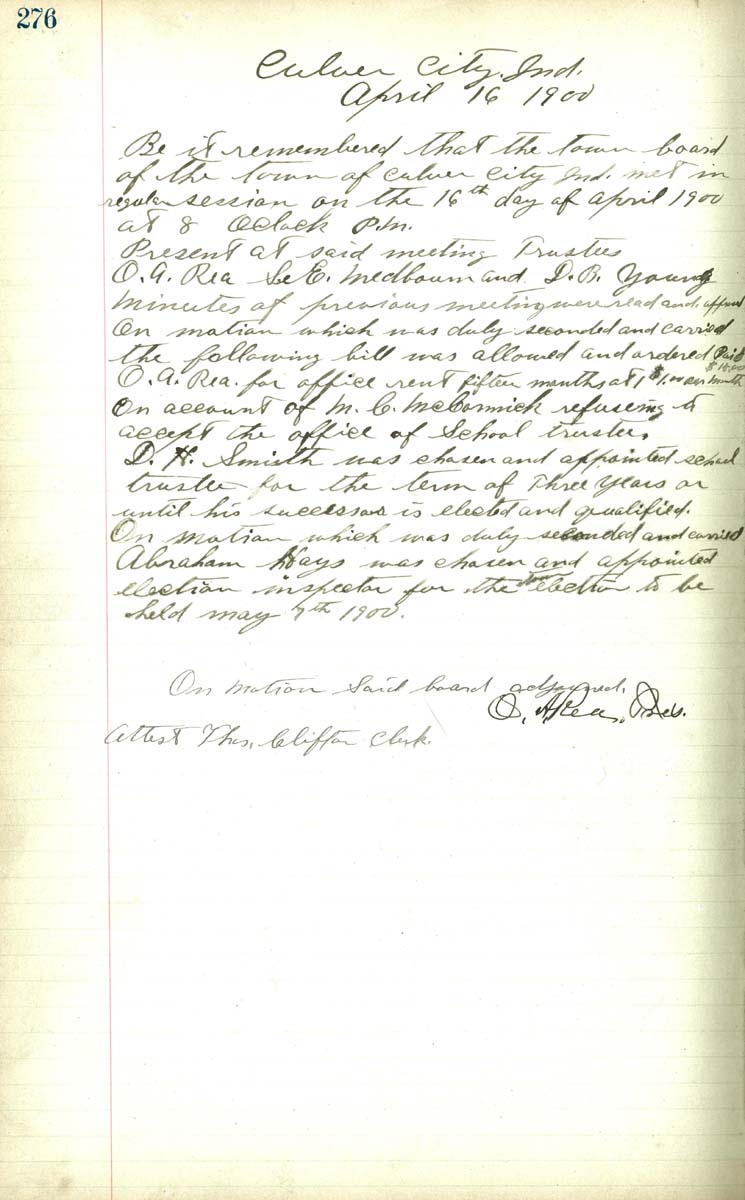 276
Culver City, Ind.
April 16 1900
Be it remembered that the town board
of the town of Culver City Ind. met in
regular session on the 16th day of April 1900
at 8 Oclock P.M.
Present at said meeting Trustees
O. A. Rea E. Medbourn and D. B. Young
Minutes of previous meeting were read and
On motion which was duly seconded and carried
the following bill was allowed and ordered Paid
O. A. Rea. for office rent fifteen months at $1.00 per month $15.00
On account of M. C. McCormick refuseing to
accept the office of School trustee,
D. H. Smith was chosen and appointed school
trustee for the term of Three Years or
until his successor is elected and qualified.
On motion which was duly seconded and carried
Abraham Hays was chosen and appointed
election inspector for the town election to be
held may 7th 1900.
On motion Said board adjourned.
O. A Rea, Pres.
Attest Thos. Clifton Clerk.